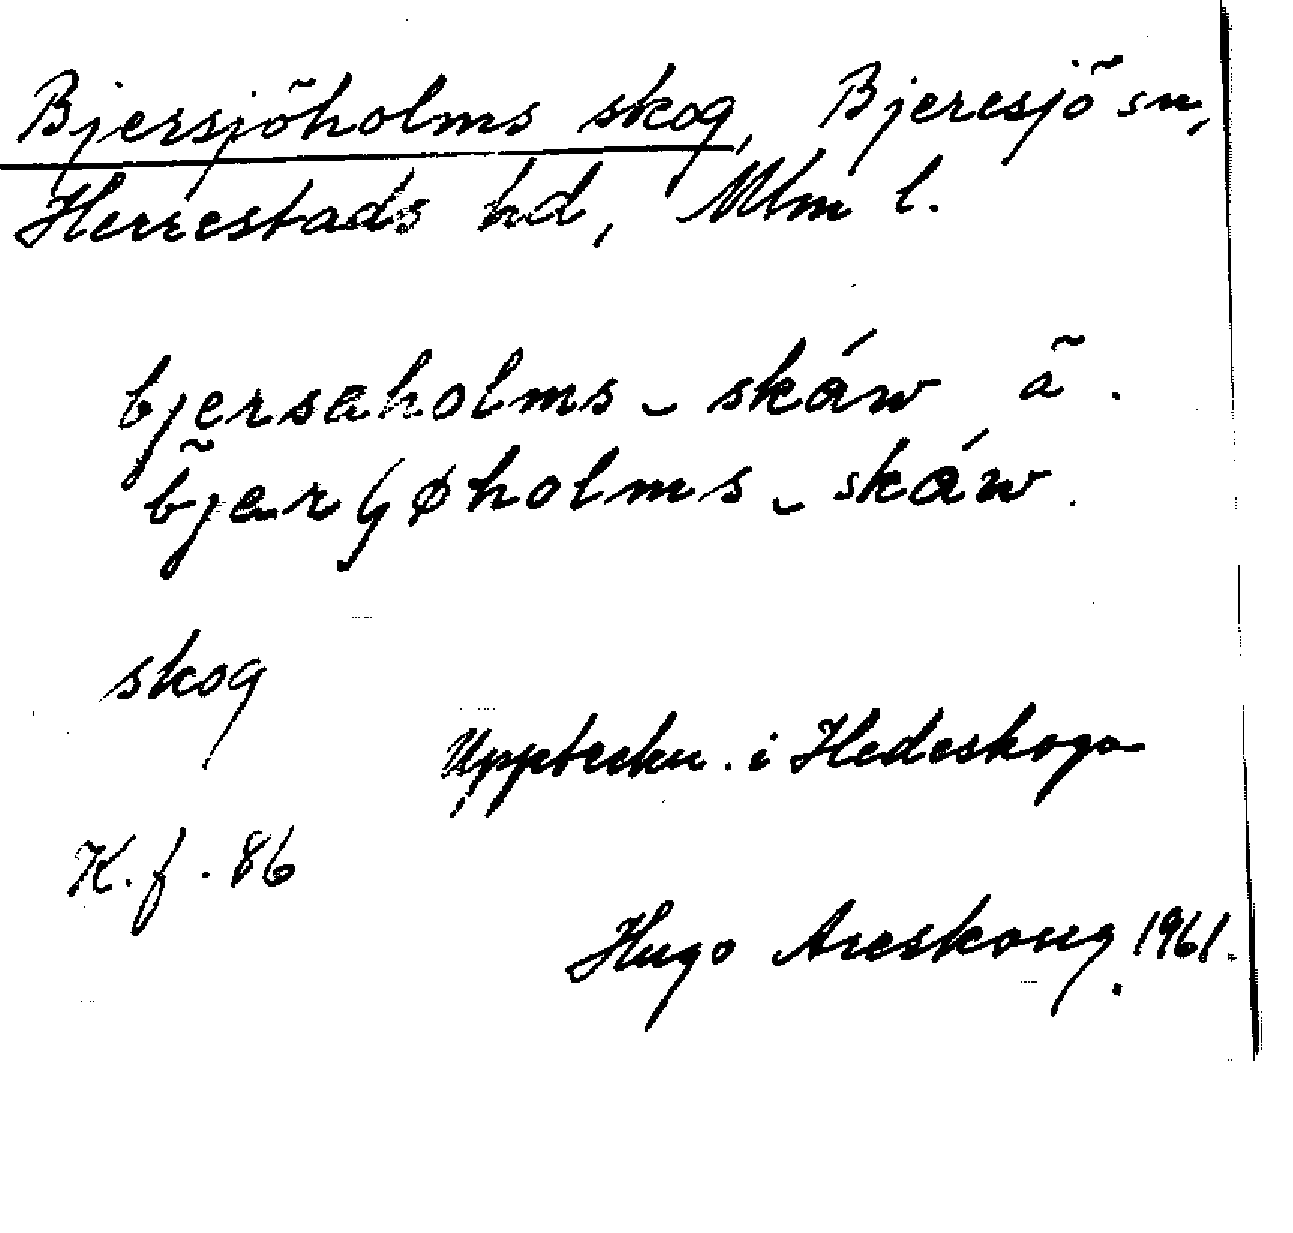 Bjersjöholms skog, Bjeresjö sn,
Herrestads hd, Mlm l.
bjersaholms ˷ skáw ä.
bjer ʃøholms ˷ skáw.
skog
Uppteckn. i Hedeskoga
K.f. 86
Hugo Areskoug. 1961.